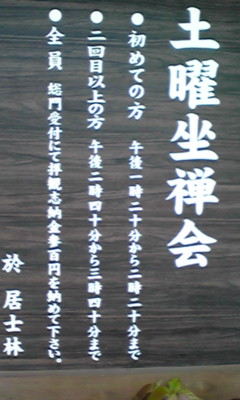 土曜坐禅会
● 初めての方 午後一時二十分から二時二十分まで
● 二回目以上の方 午後二時四十分から三時四十分まで
● 全員 総門受付にて拝観志納金参百円を納めて下さい。
於 居士林